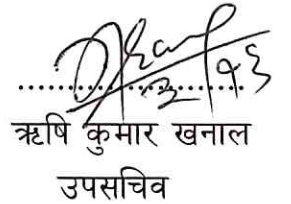 ऋषि कुमार खनाल
उपसचिव